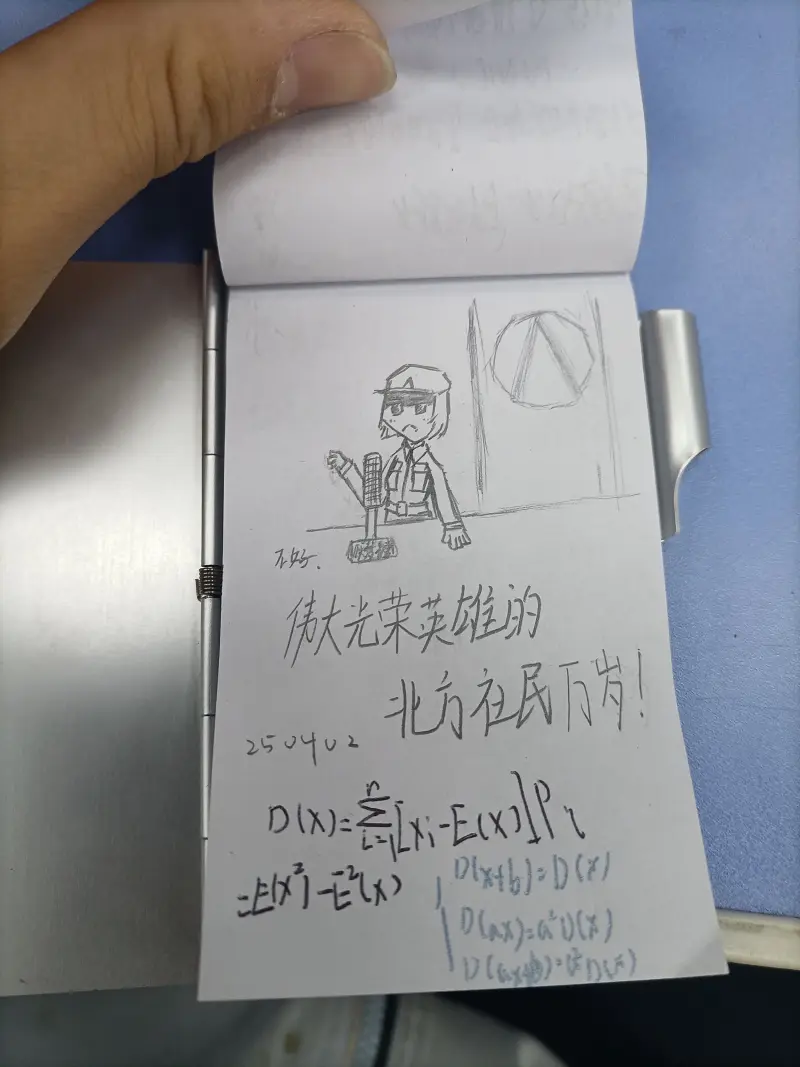 不好.
伟大光荣英雄的
北方社民万岁!
250402
D(X)=∑ⁿᵢ₌₁[xᵢ-E(X)]Pᵢ
=E(X²)-E²(X)
D(x+b)=D(x)
D(ax)=a²D(x)
D(ax+b)=a²D(x)